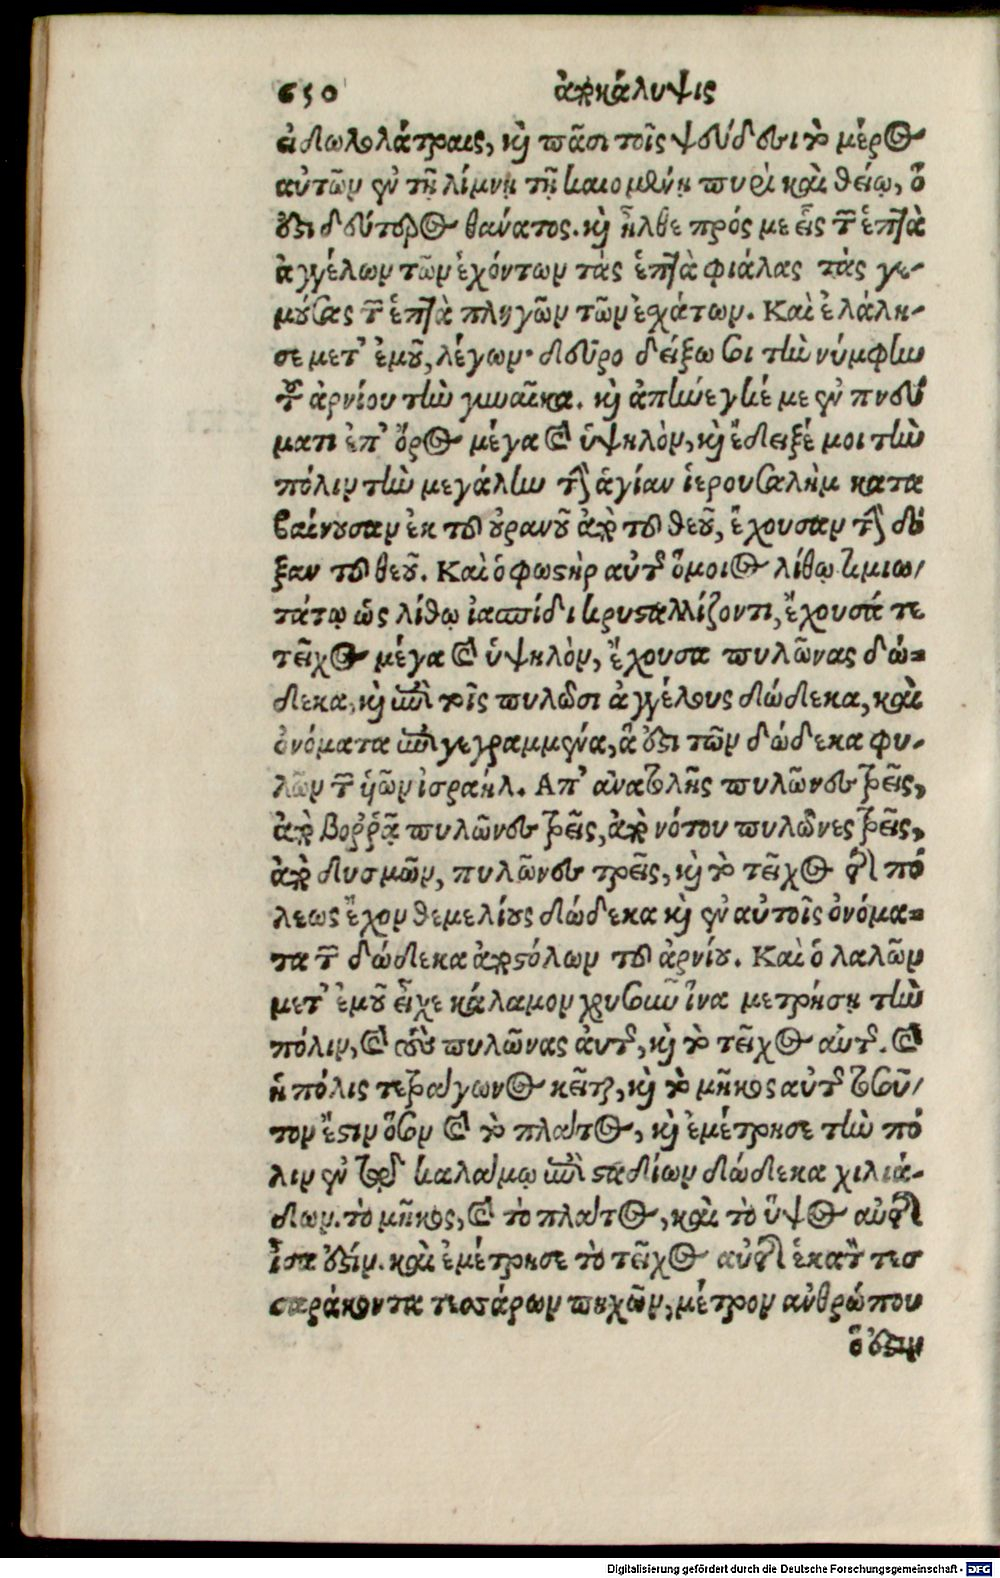 650 ἀποκάλυψις
εἰδωλολάτραις, καὶ πᾶσι τοῖς ψεύδεσι τὸ μέρος
αὐτῶν ἐν τῇ λίμνῃ τῇ καιομένῃ πυρὶ καὶ θείῳ, ὅ
ἐστι δεύτερος θάνατος. καὶ ἦλθε πρός με εἷς τῶν ἑπτὰ
ἀγγέλων τῶν ἐχόντων τὰς ἑπτὰ φιάλας τὰς γε-
μούσας τῶν ἑπτὰ πληγῶν τῶν ἐσχάτων. Καὶ ἐλάλη-
σε μετ’ ἐμοῦ, λέγων· δεῦρο δείξω σοι τὴν νύμφην
τοῦ ἀρνίου τὴν γυναῖκα. καὶ ἀπήνεγκέ με ἐν πνεύ
ματι ἐπ’ ὄρος μέγα καὶ ὑψηλὸν, καὶ ἔδειξέ μοι τὴν
πόλιν τὴν μεγάλην τὴν ἁγίαν ἱερουσαλὴμ κατα
βαίνουσαν ἐκ τοῦ οὐρανοῦ ἀπὸ τοῦ θεοῦ, ἔχουσαν τὴν δό
ξαν τοῦ θεοῦ. Καὶ ὁ φωστὴρ αὐτῆς ὅμοιος λίθῳ τιμιω/
τάτῳ ὡς λίθῳ ἰασπίδι κρυσταλλίζοντι, ἔχουσά τε
τεῖχος μέγα καὶ ὑψηλὸν, ἔχουσα πυλῶνας δώ-
δεκα, καὶ ἐπὶ τοῖς πυλῶσι ἀγγέλους δώδεκα, καὶ
ὀνόματα ἐπιγεγραμμένα, ἅ ἐστι τῶν δώδεκα φυ-
λῶν τῶν υἱῶν ἰσραήλ. Απ’ ἀνατολῆς πυλῶνες τρεῖς,
ἀπὸ βοῤῥᾶ πυλῶνες τρεῖς, ἀπὸ νότου πυλῶνες τρεῖς,
ἀπὸ δυσμῶν, πυλῶνες τρεῖς, καὶ τὸ τεῖχος τῆς πό
λεως ἔχον θεμελίους δώδεκα καὶ ἐν αὐτοῖς ὀνόμα-
τα τῶν δώδεκα ἀποστόλων τοῦ ἀρνίου. Καὶ ὁ λαλῶν
μετ’ ἐμοῦ εἶχε κάλαμον χρυσοῦν ἵνα μετρήσῃ τὴν
πόλιν, καὶ τοὺς πυλῶνας αὐτῆς, καὶ τὸ τεῖχος αὐτῆς. καὶ
ἡ πόλις τετράγωνος κεῖται, καὶ τὸ μῆκος αὐτῆς τοσοῦ/
τον ἔστιν ὅσον καὶ τὸ πλάτος, καὶ ἐμέτρησε τὴν πό
λιν ἐν τῷ καλάμῳ ἐπὶ σταδίων δώδεκα χιλιά-
δων. τὸ μῆκος, καὶ τὸ πλάτος, καὶ τὸ ὕψος αὐτῆς
ἴσα ἐστίν. καὶ ἐμέτρησε τὸ τεῖχος αὐτῆς ἑκατὸν τεσ
σαράκοντα τεσσάρων πηχῶν, μέτρον ἀνθρώπου
ὅ ἐστιν
Digitalisierung gefördert durch die Deutsche Forschungsgemeinschaft - DFG